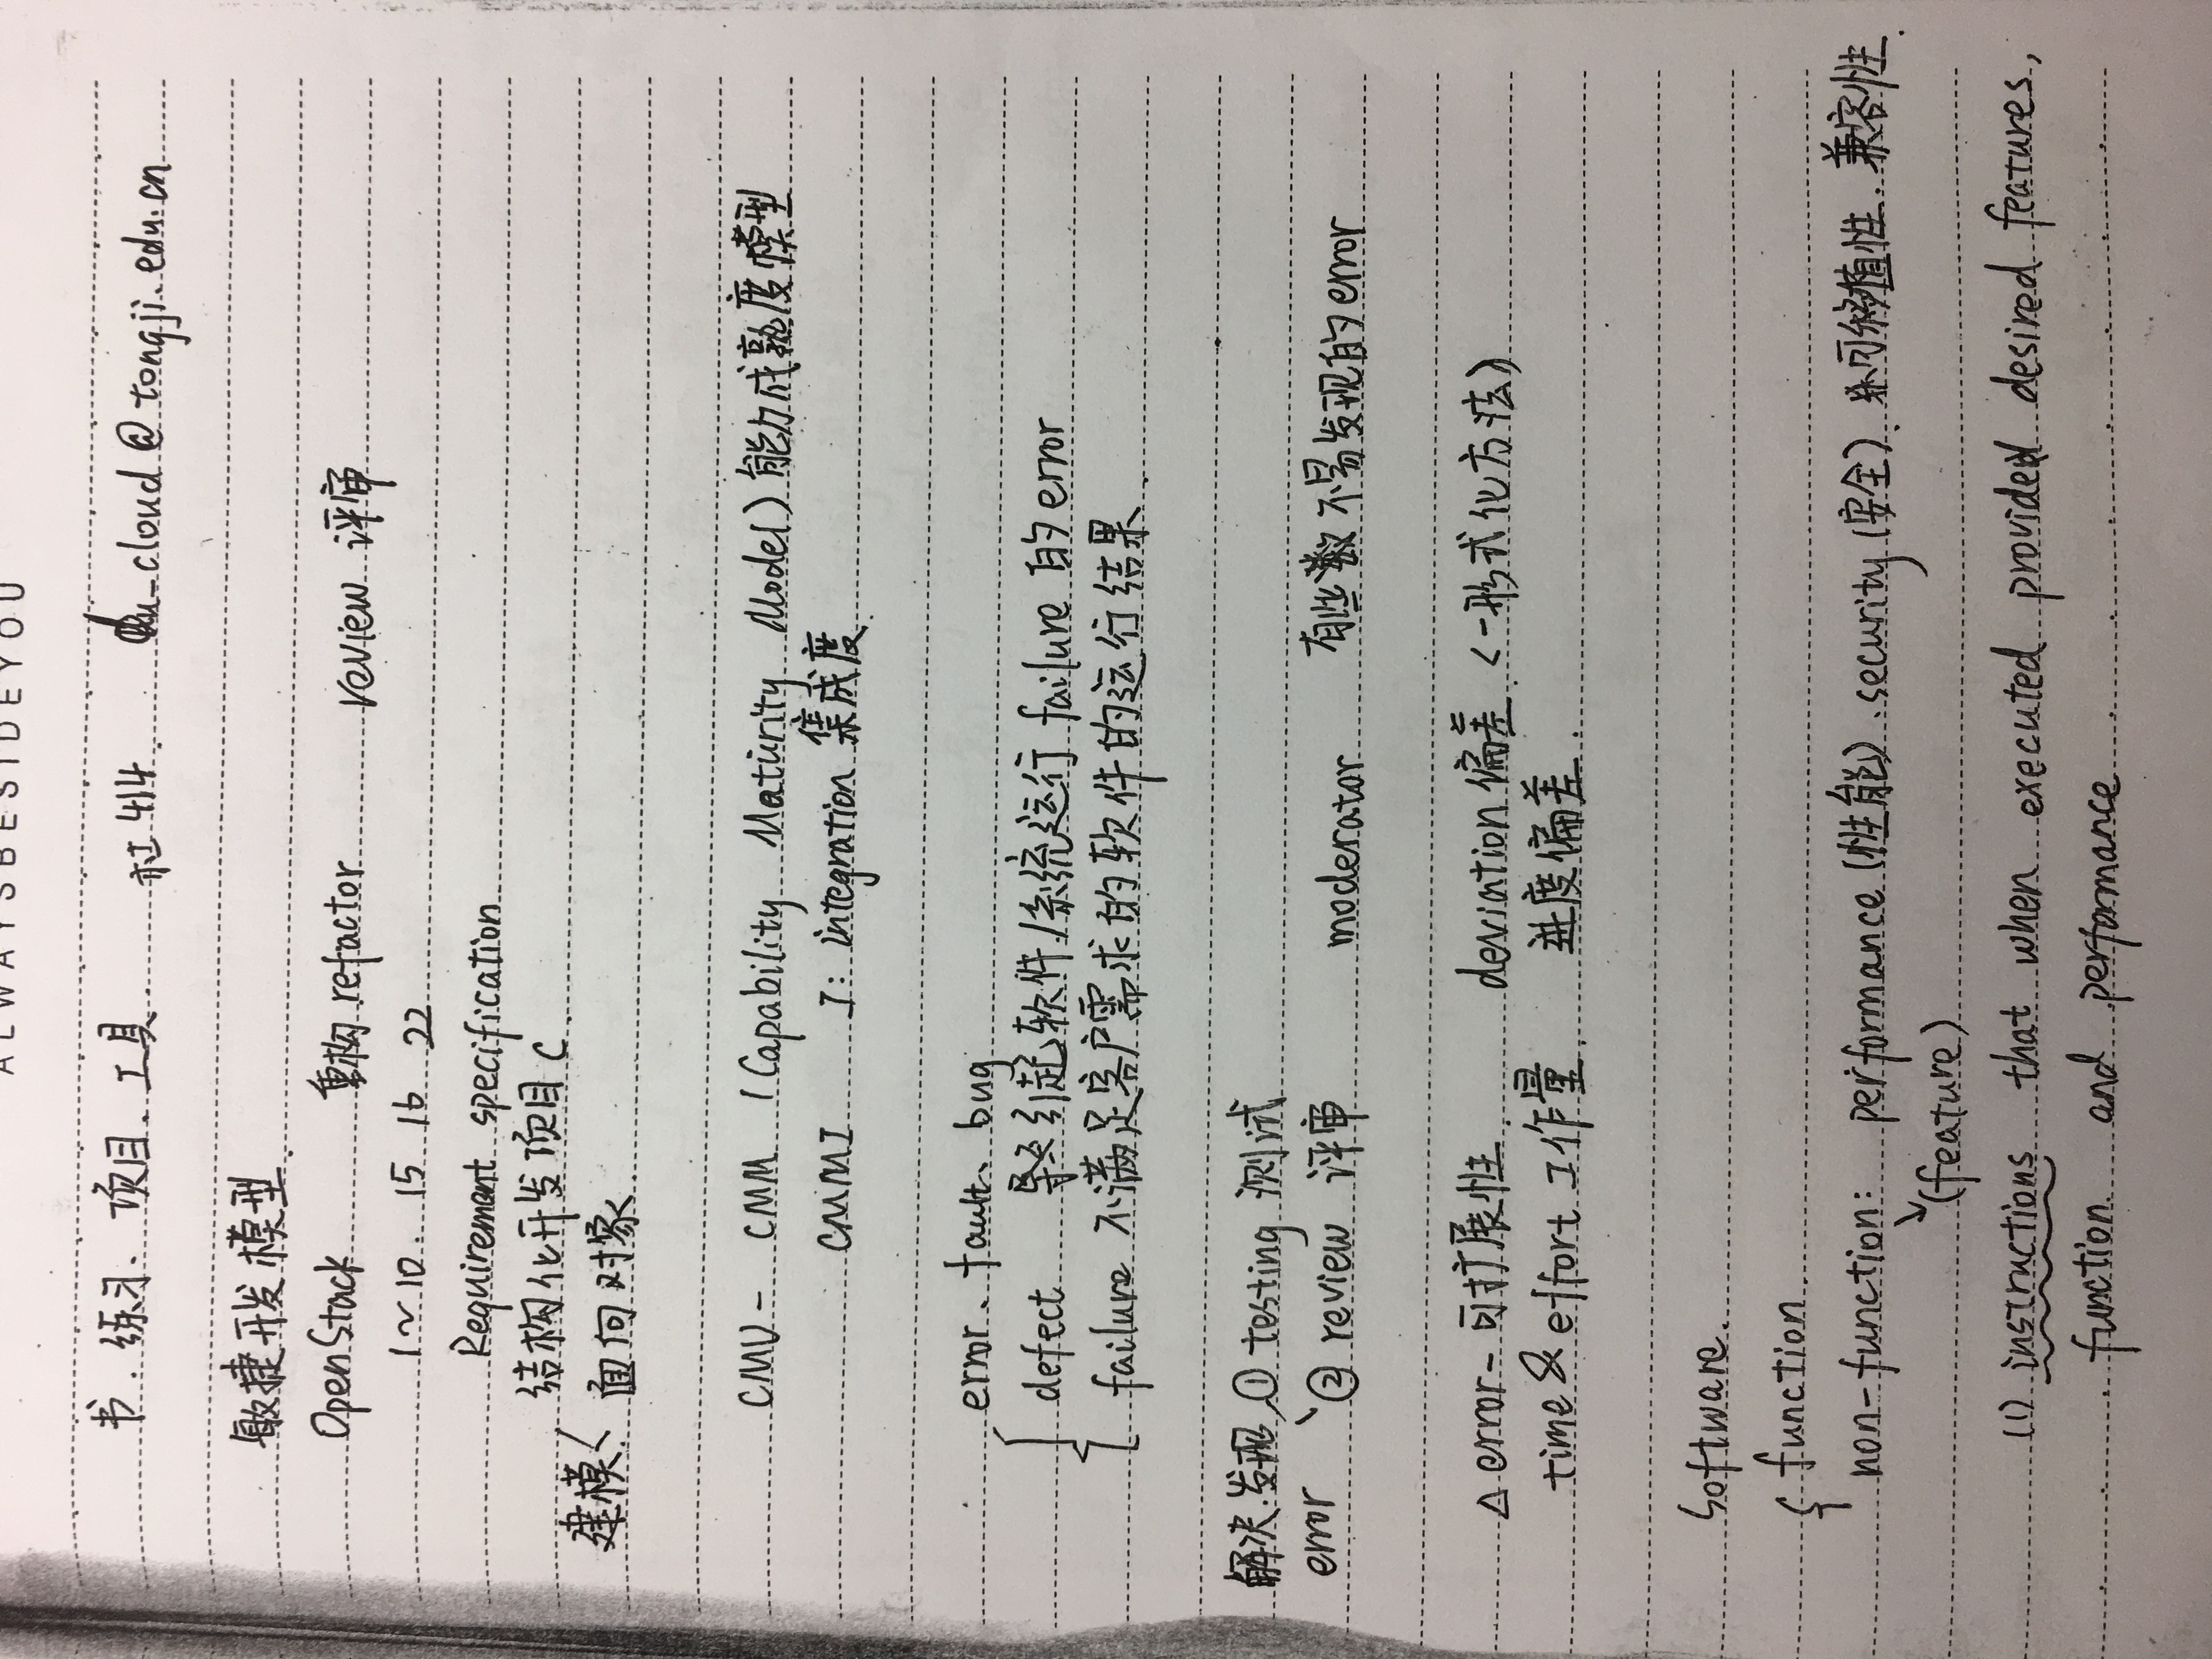 ALWAYSBESIDEYOU
书、练习、项目、工具. 414. du_cloud@tongji.edu.cn
敏捷开发模型.
OpenStack 重构 refactor review 评审
1~10. 15 16 22
Requirement specification
结构化开发项目 C.
建模.
面向对象.
CMU - CMM (Capability Maturity Model) 能力成熟度模型
CMMI I: integration 集成度.
error、fault、bug
defect 引起软件/系统运行 failure 的 error
failure 不满足客户需求的软件的运行结果.
解决.发现 ① testing 测试
error ② review 评审 moderator 有些 不易发现的 error
△ error - 可扩展性. deviation 偏差. <-形式化方法>
time & effort 工作量. 进度偏差.
Software.
function.
non-function: performance (性能). security (安全). 可移植性. 兼容性.
(feature)
(1) instructions that when executed provide desired features,
function and performance